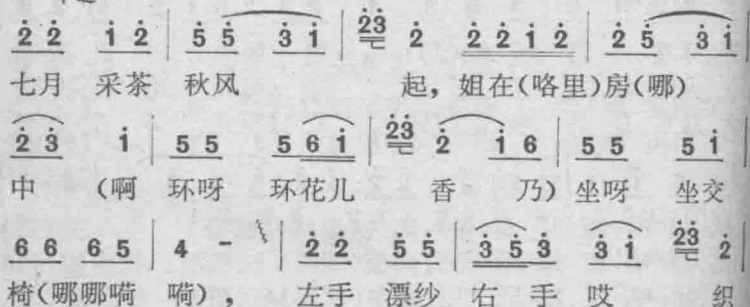 2̇ 2̇ 1̇ 2̇ | 5̇ 5̇ 3̇ 1̇ | 2̇3̇ 2̇ 2̇ 2̇ 1̇ 2̇ | 2̇ 5̇ 3̇ 1̇
七月 采茶 秋风 起，姐在(咯里)房(哪)
2̇ 3̇ 1̇ | 5 5 5 6 1̇ | 2̇3̇ 2̇ 1̇ 6 | 5 5 5 1̇
中 (啊 环呀 环花儿 香 乃) 坐呀 坐交
6 6 6 5 | 4 - | 2̇ 2̇ 5̇ 5̇ | 3̇ 5̇ 3̇ 3̇ 1̇ 2̇3̇ 2̇
椅(哪哪嗬 嗬)， 左手 漂纱 右 手 哎 织